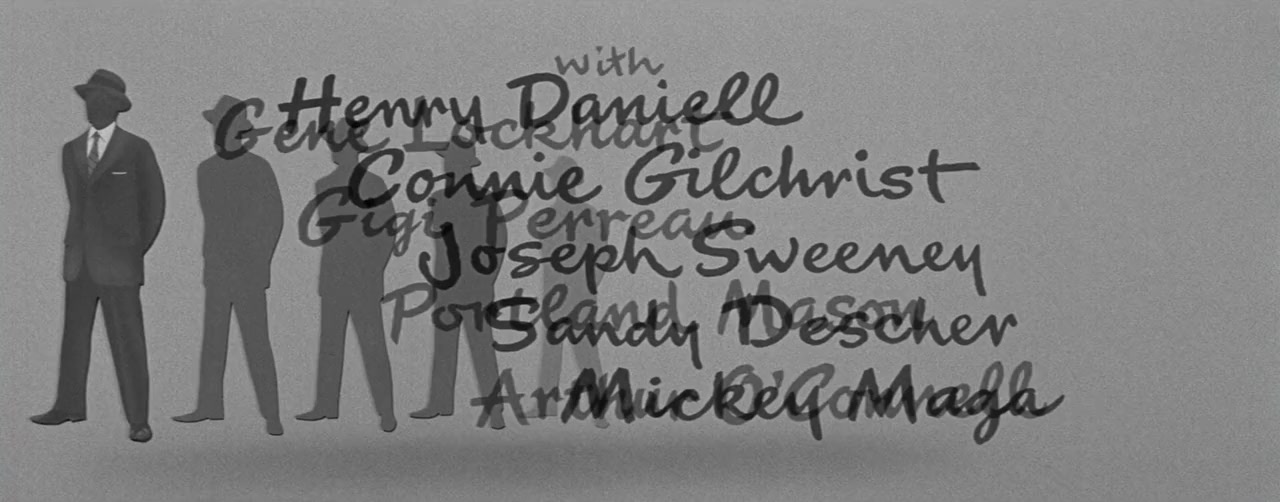 with
Henry Daniell
Gene Lockhart
Connie Gilchrist
Gigi Perreau
Joseph Sweeney
Portland Mason
Sandy Descher
Arthur O'Connell
Mickey Maga